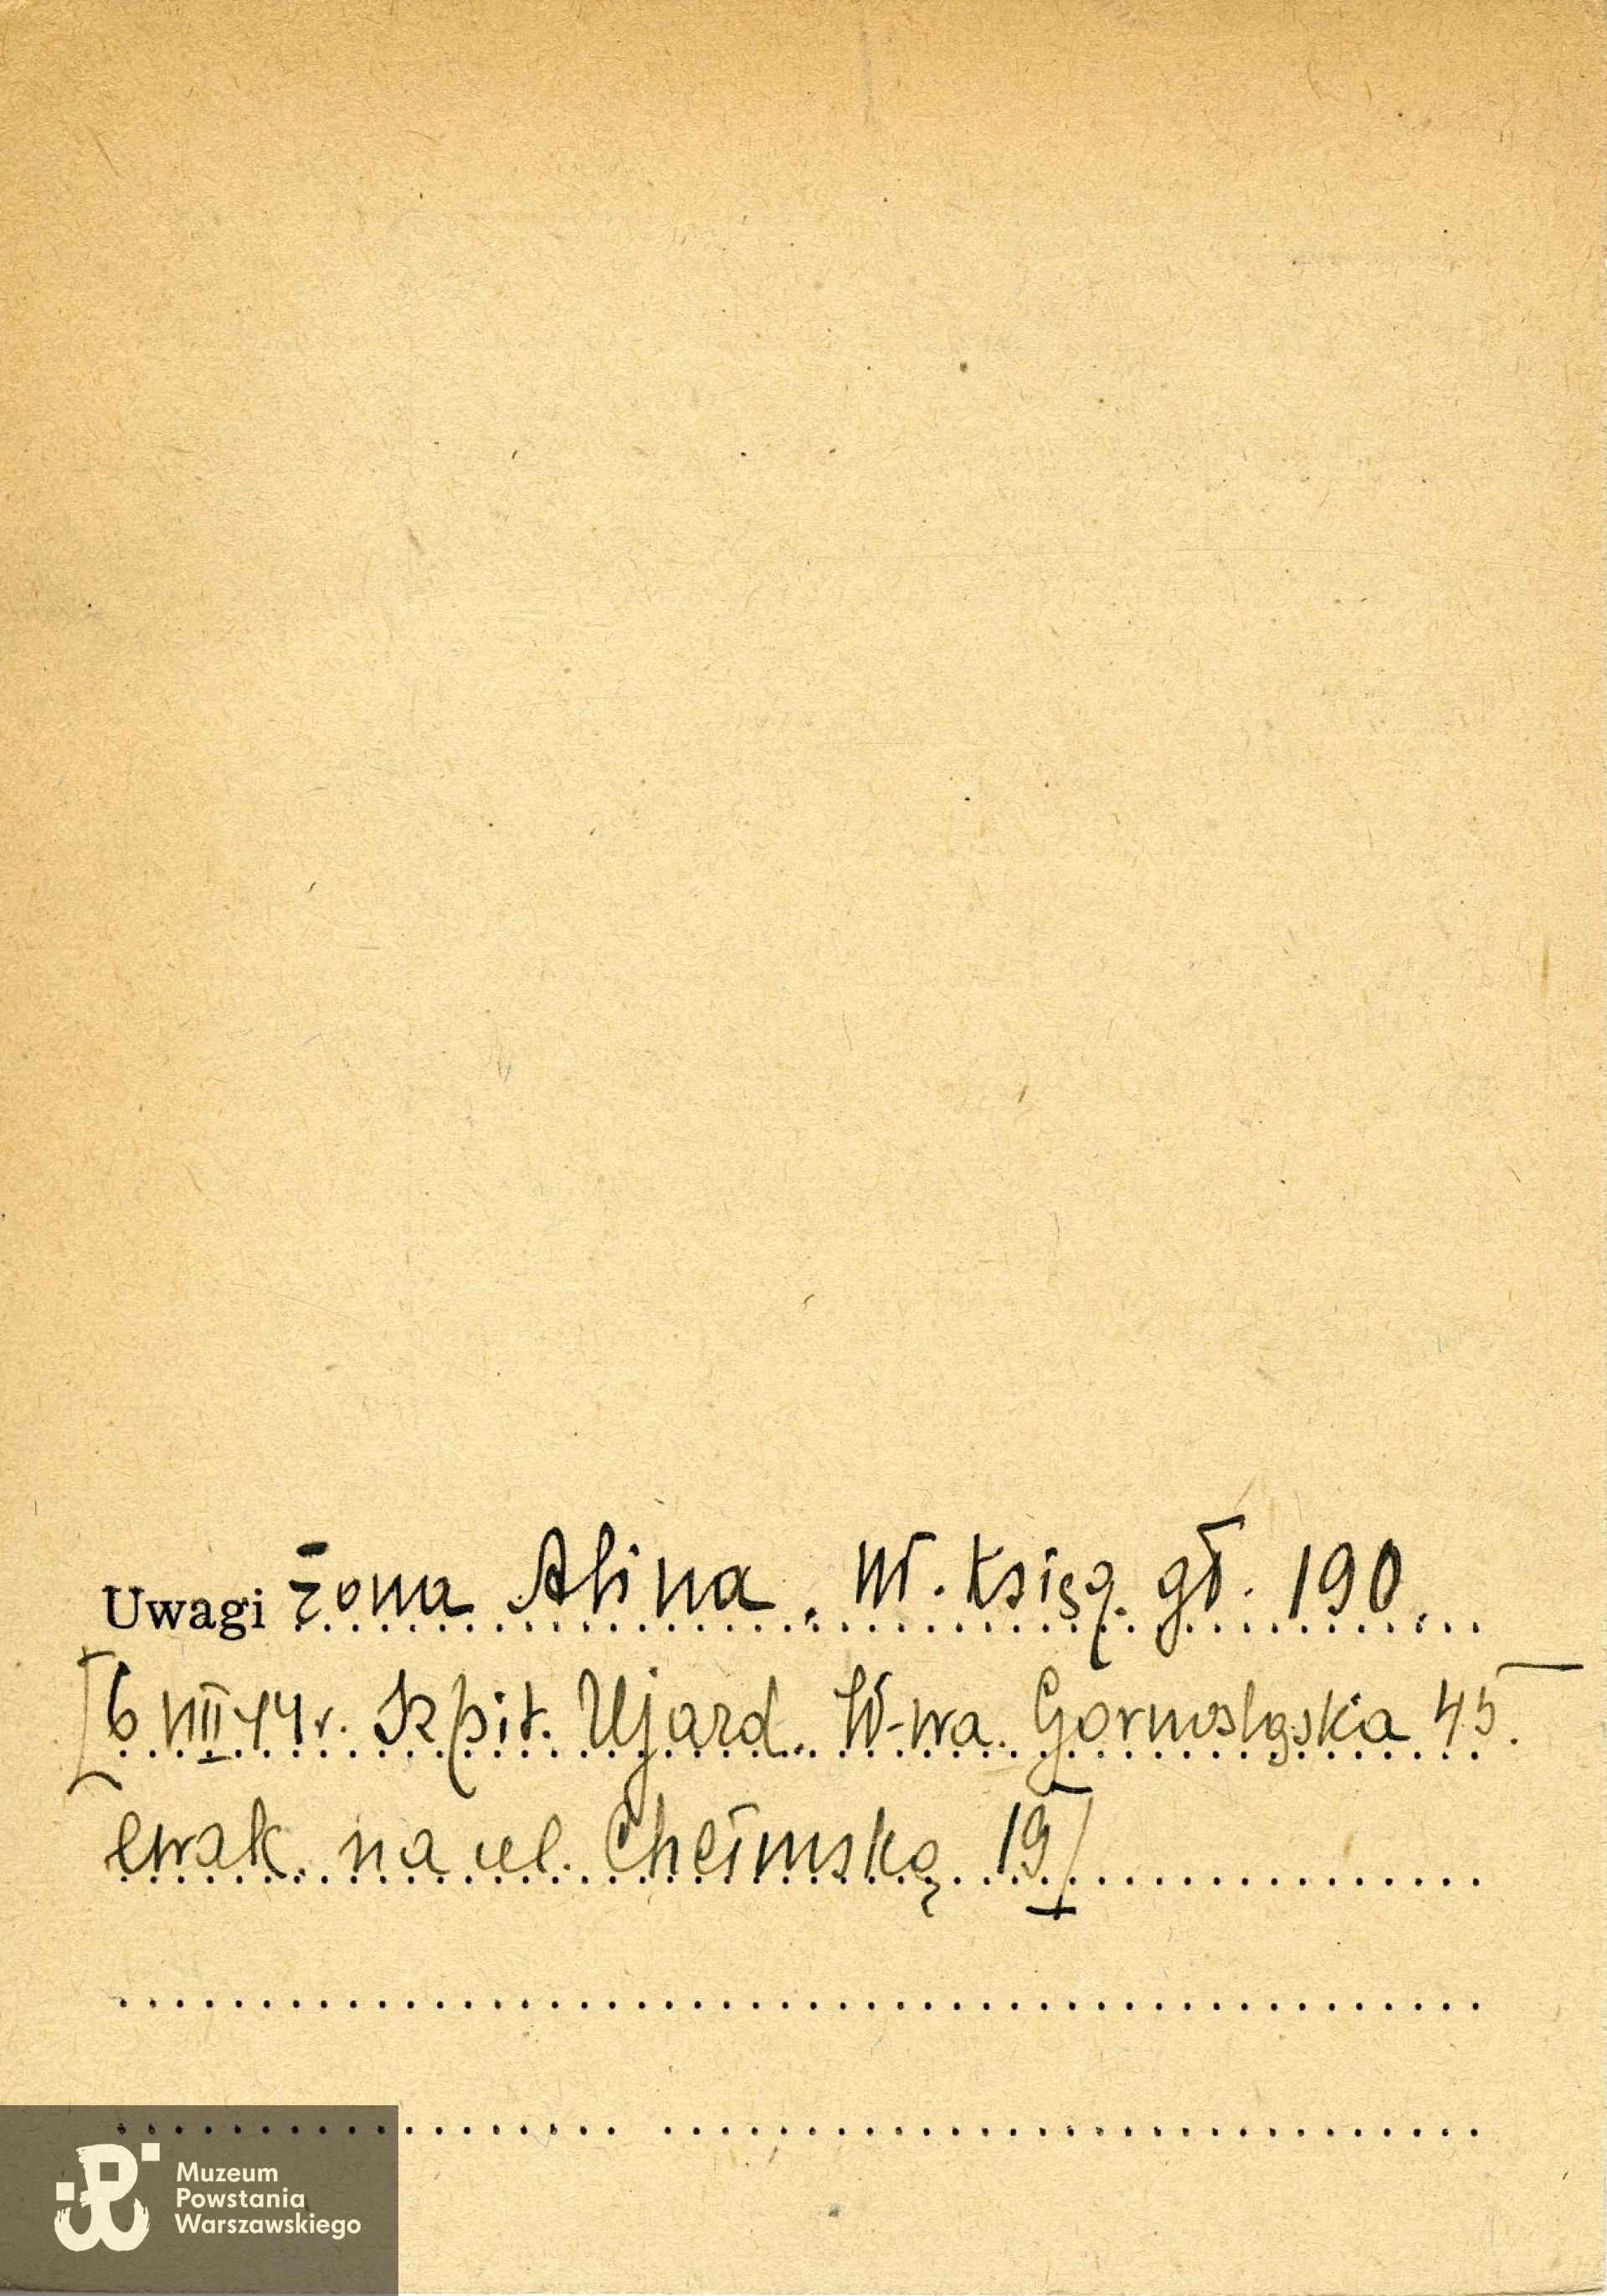 Uwagi żona Alina. Nr. księg. gł. 190.
[6 VIII 44 r. Szpit. Ujazd. W-wa. Gornosląska 45.
ewak. na ul. Chełmską 19]
Muzeum
Powstania
Warszawskiego